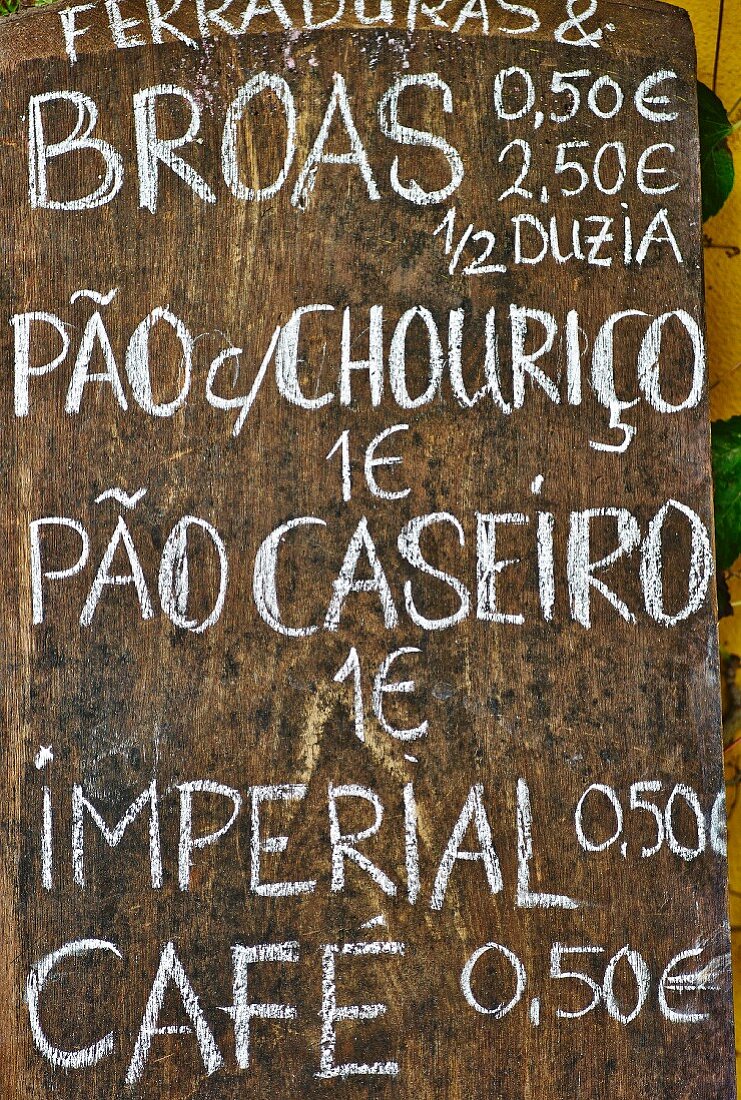 FERRADURAS &
BROAS 0,50€
2,50€
1/2 DUZIA
PÃO c/CHOURIÇO
1€
PÃO CASEIRO
1€
IMPERIAL 0,50€
CAFÉ 0,50€